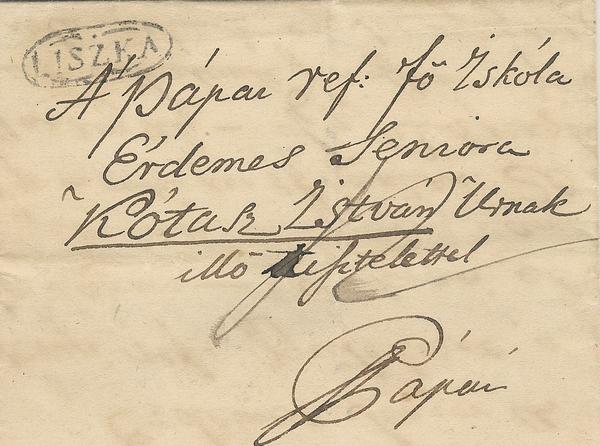 LISZKA
A' Pápai ref: Fő Iskóla
Érdemes Seniora
Kótasz István Urnak
illő tisztelettel
Pápán